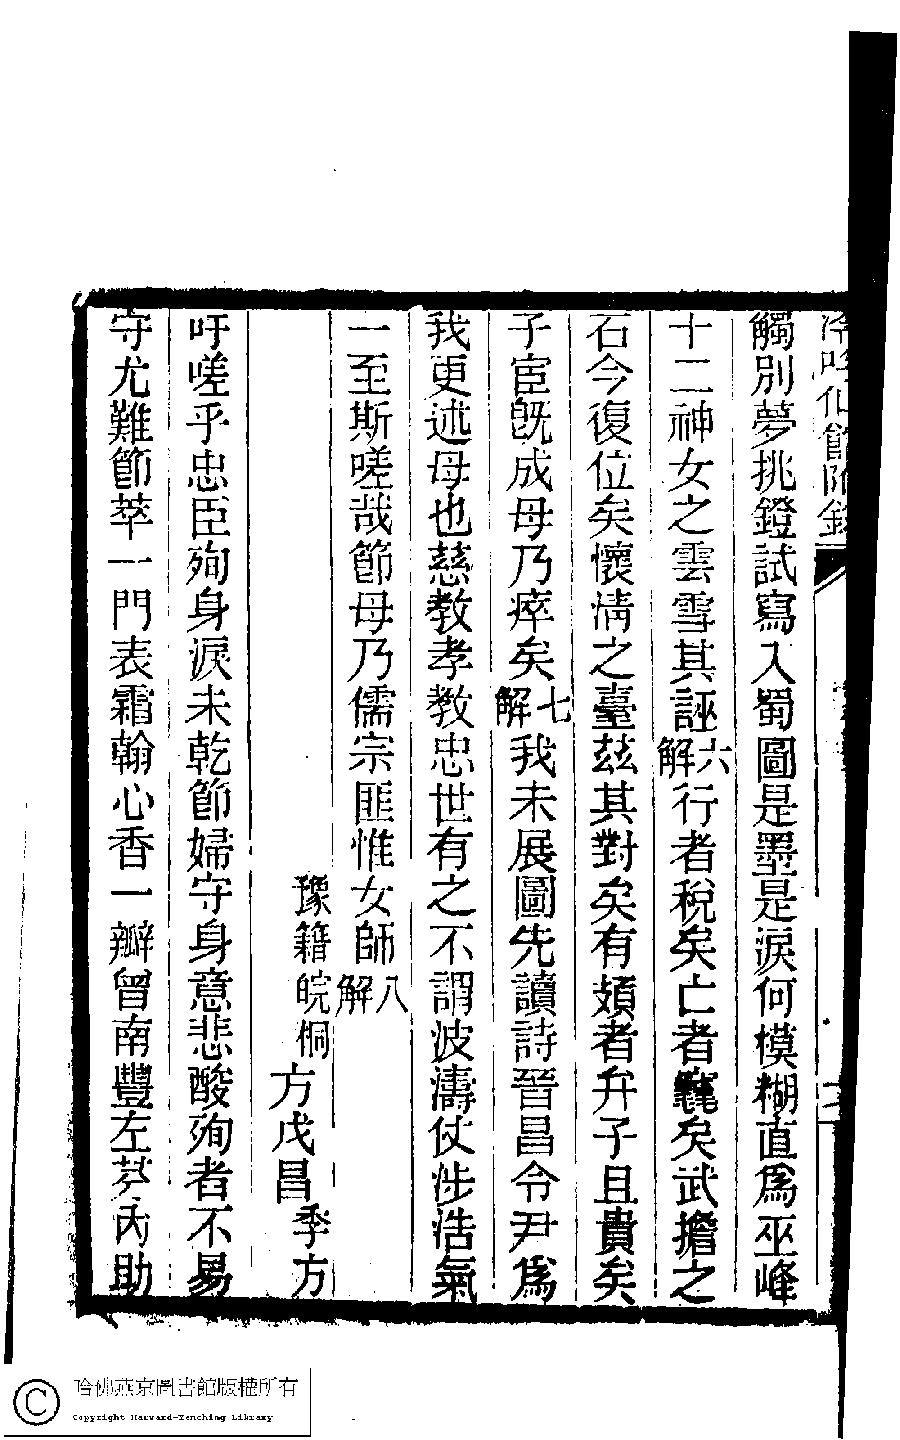 觸別夢挑鐙試寫入蜀圖是墨是淚何模糊直爲巫峰
十二神女之雲雪其誣六解行者稅矣亡者窺矣武擔之
石今復位矣懷情之臺茲其對矣有頍者弁子且貴矣
子宦旣成母乃瘁矣七解我未展圖先讀詩晉昌令尹爲
我更述母也慈教孝教忠世有之不謂波濤仗涉浩氣
一至斯嗟哉節母乃儒宗匪惟女師八解
豫籍皖桐方戊昌季方
吁嗟乎忠臣殉身淚未乾節婦守身意悲酸殉者不易
守尤難節萃一門表霜翰心香一瓣曾南豐左芬內助
哈佛燕京圖書館版權所有
Copyright Harvard-Yenching Library